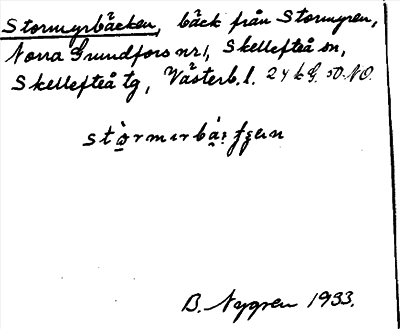 Stormyrbäcken, bäck från Stormyren,
Norra Grundfors nr 1, Skellefteå sn,
Skellefteå tg, Västerb. l. 24 k G. 50. NO.
B. Nygren 1933.